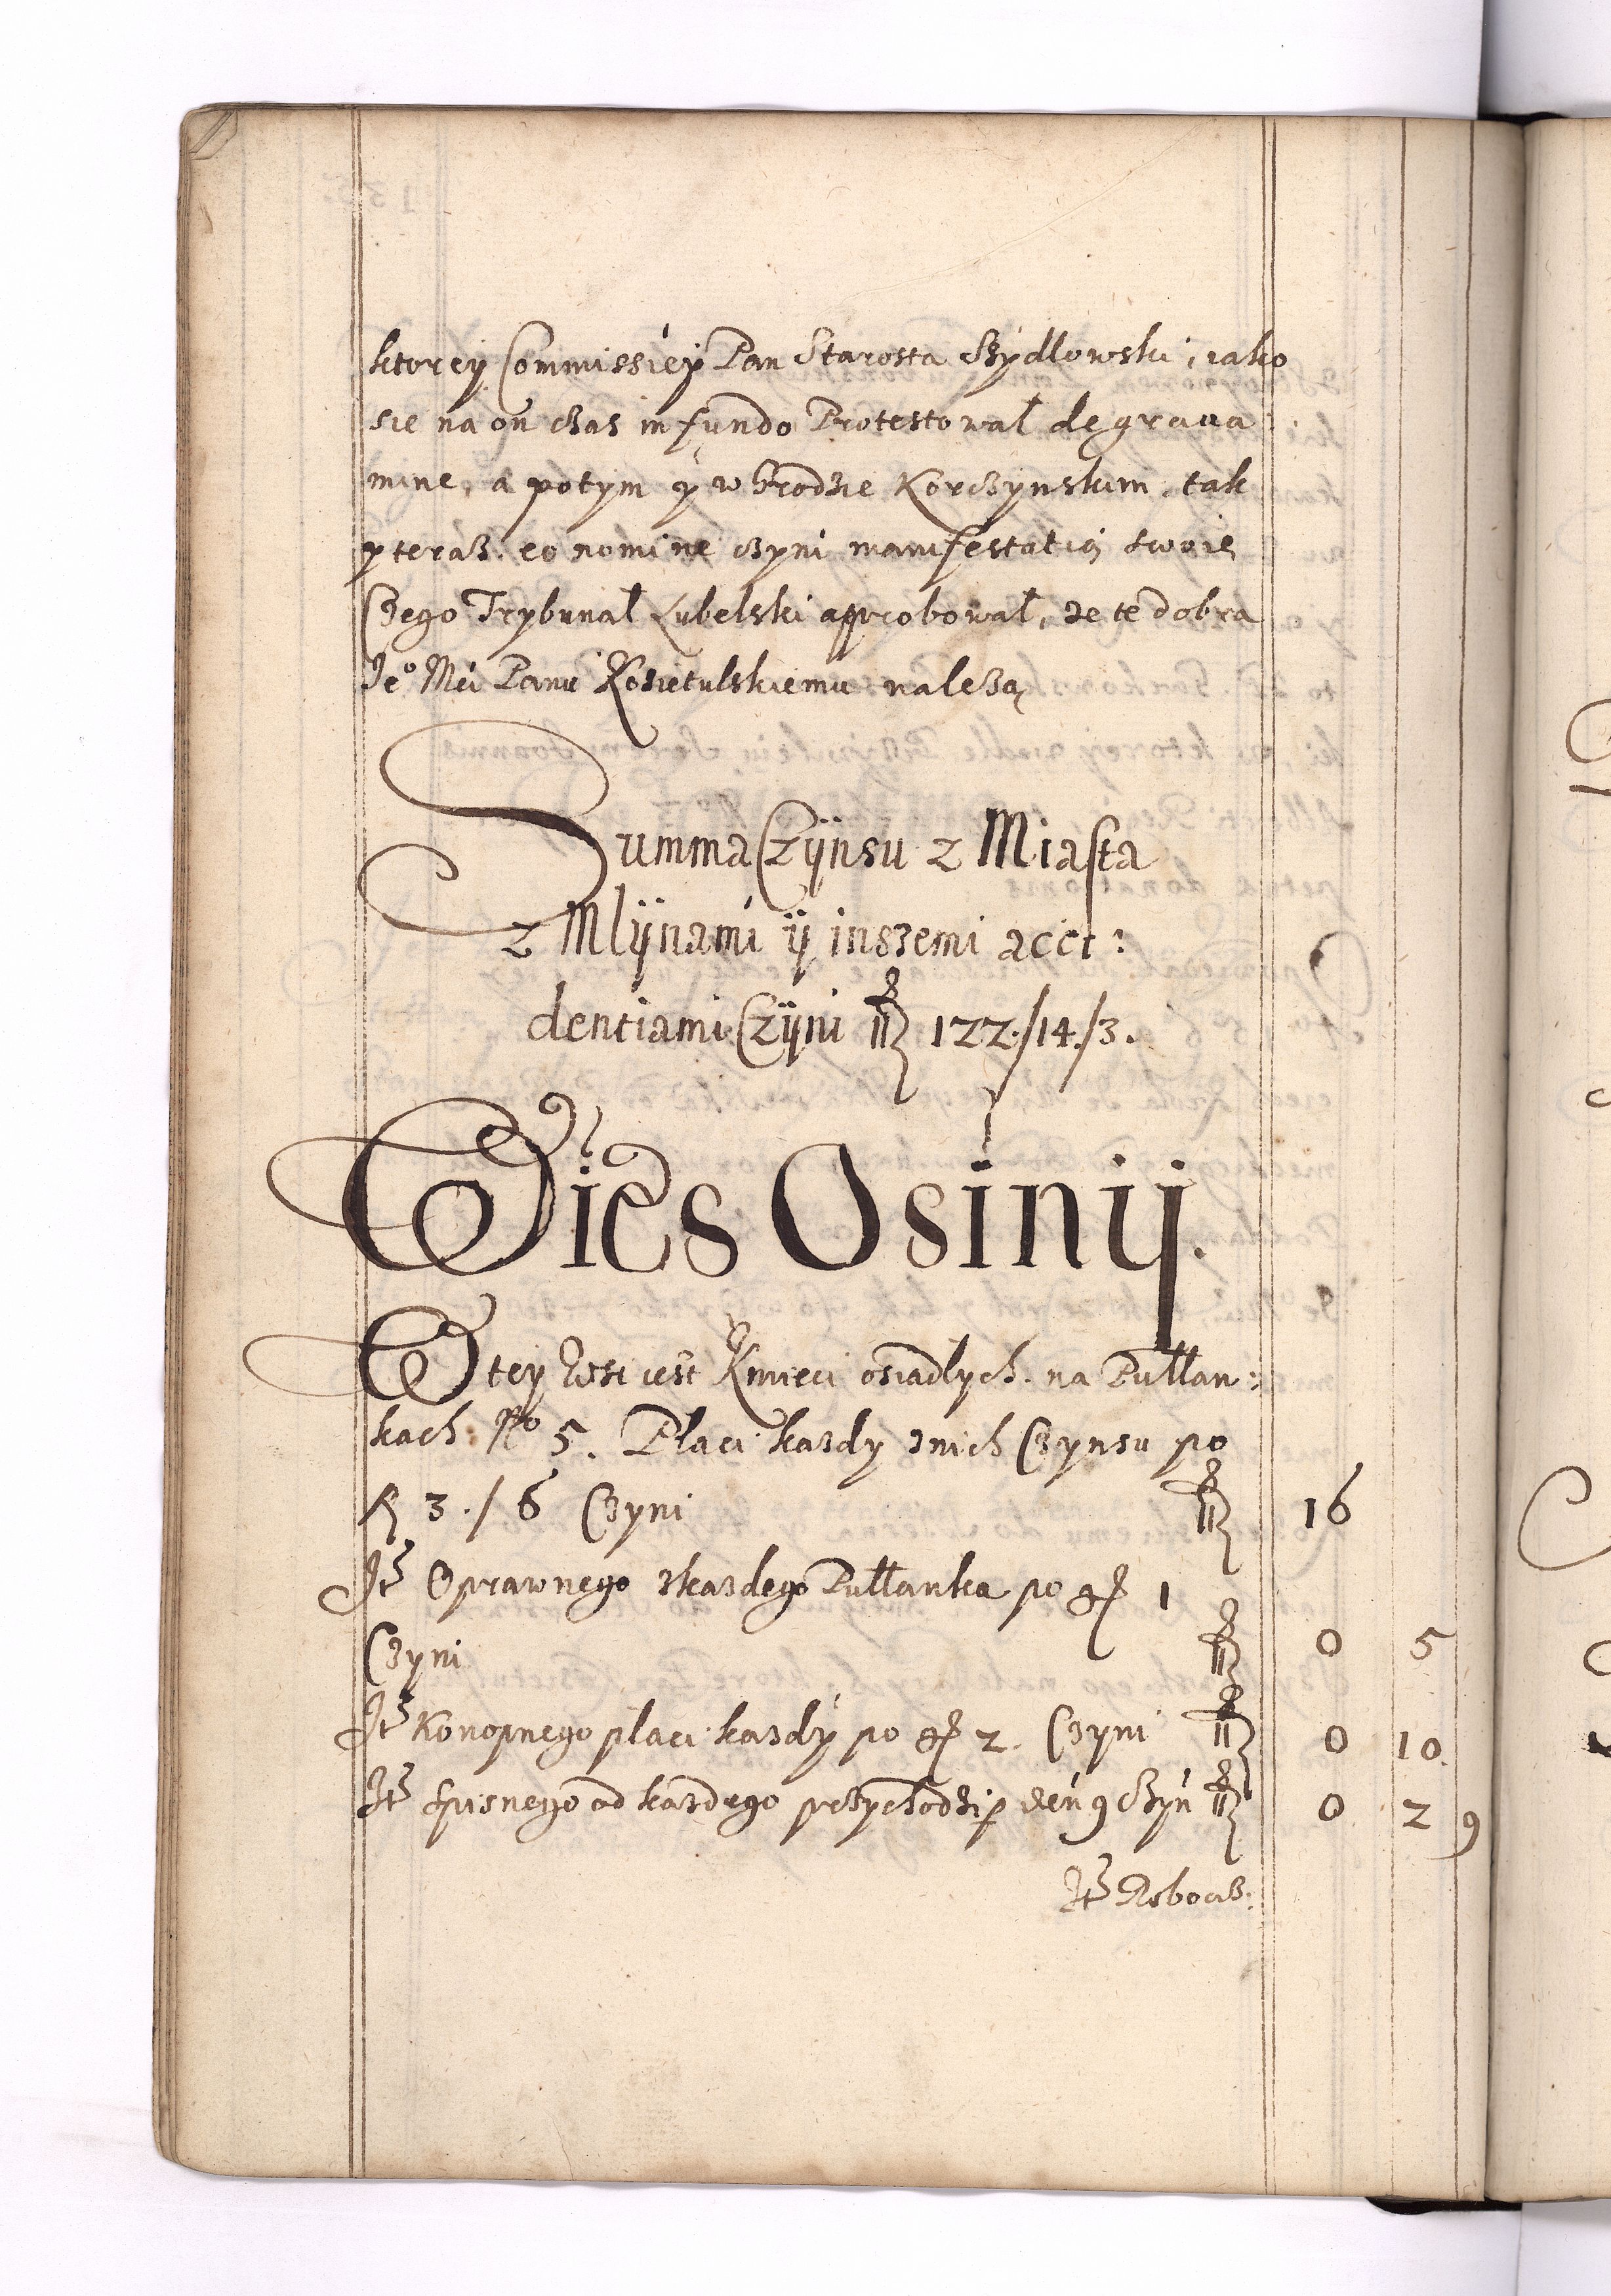 ktorey Commissiey Pan Starosta Szydlowski, iako
sie na on czas in fundo Protestował de graua
mine, a potym y w Grodzie Korczynskim, tak
y teraz eo nomine czyni manifestatią swoię
Czego Trybunał Lubelski approbował, ze te dobra
Je° Mci Panu Kosietulskiemu nalezą
Summa Czÿnsu z Miasta
z Mlÿnami ÿ inszemi acci:
dentiami Czÿni 122./14./3.
Wies Osinÿ.
W tey Wsi iest Kmieci osiadlych na Pułłan:
kach N° 5. Placi kazdy z nich Czynsu po
3./6 Czyni 16
It Oprawnego z kazdego Pułłanka po g 1
Czyni 0 5
It Konopnego placi kazdy po g 2. Czyni 0 10
It spisnego od kazdego przychodzi p den 9 Czyn 0 2 9
It Robocz: